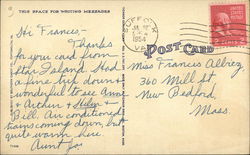 THIS SPACE FOR WRITING MESSAGES
Hi Frances,-
Thanks
for you card from
Star Island. Had
a fine trip down &
wonderful to see Anne
& Arthur & Helen &
Bill. Air conditioned
trains coming down, but
quite warm here.
Aunt Jo
SUFFOLK
1954
VA
POST CARD
Miss Frances Albrey
360 Mill St
New Bedford,
Mass.